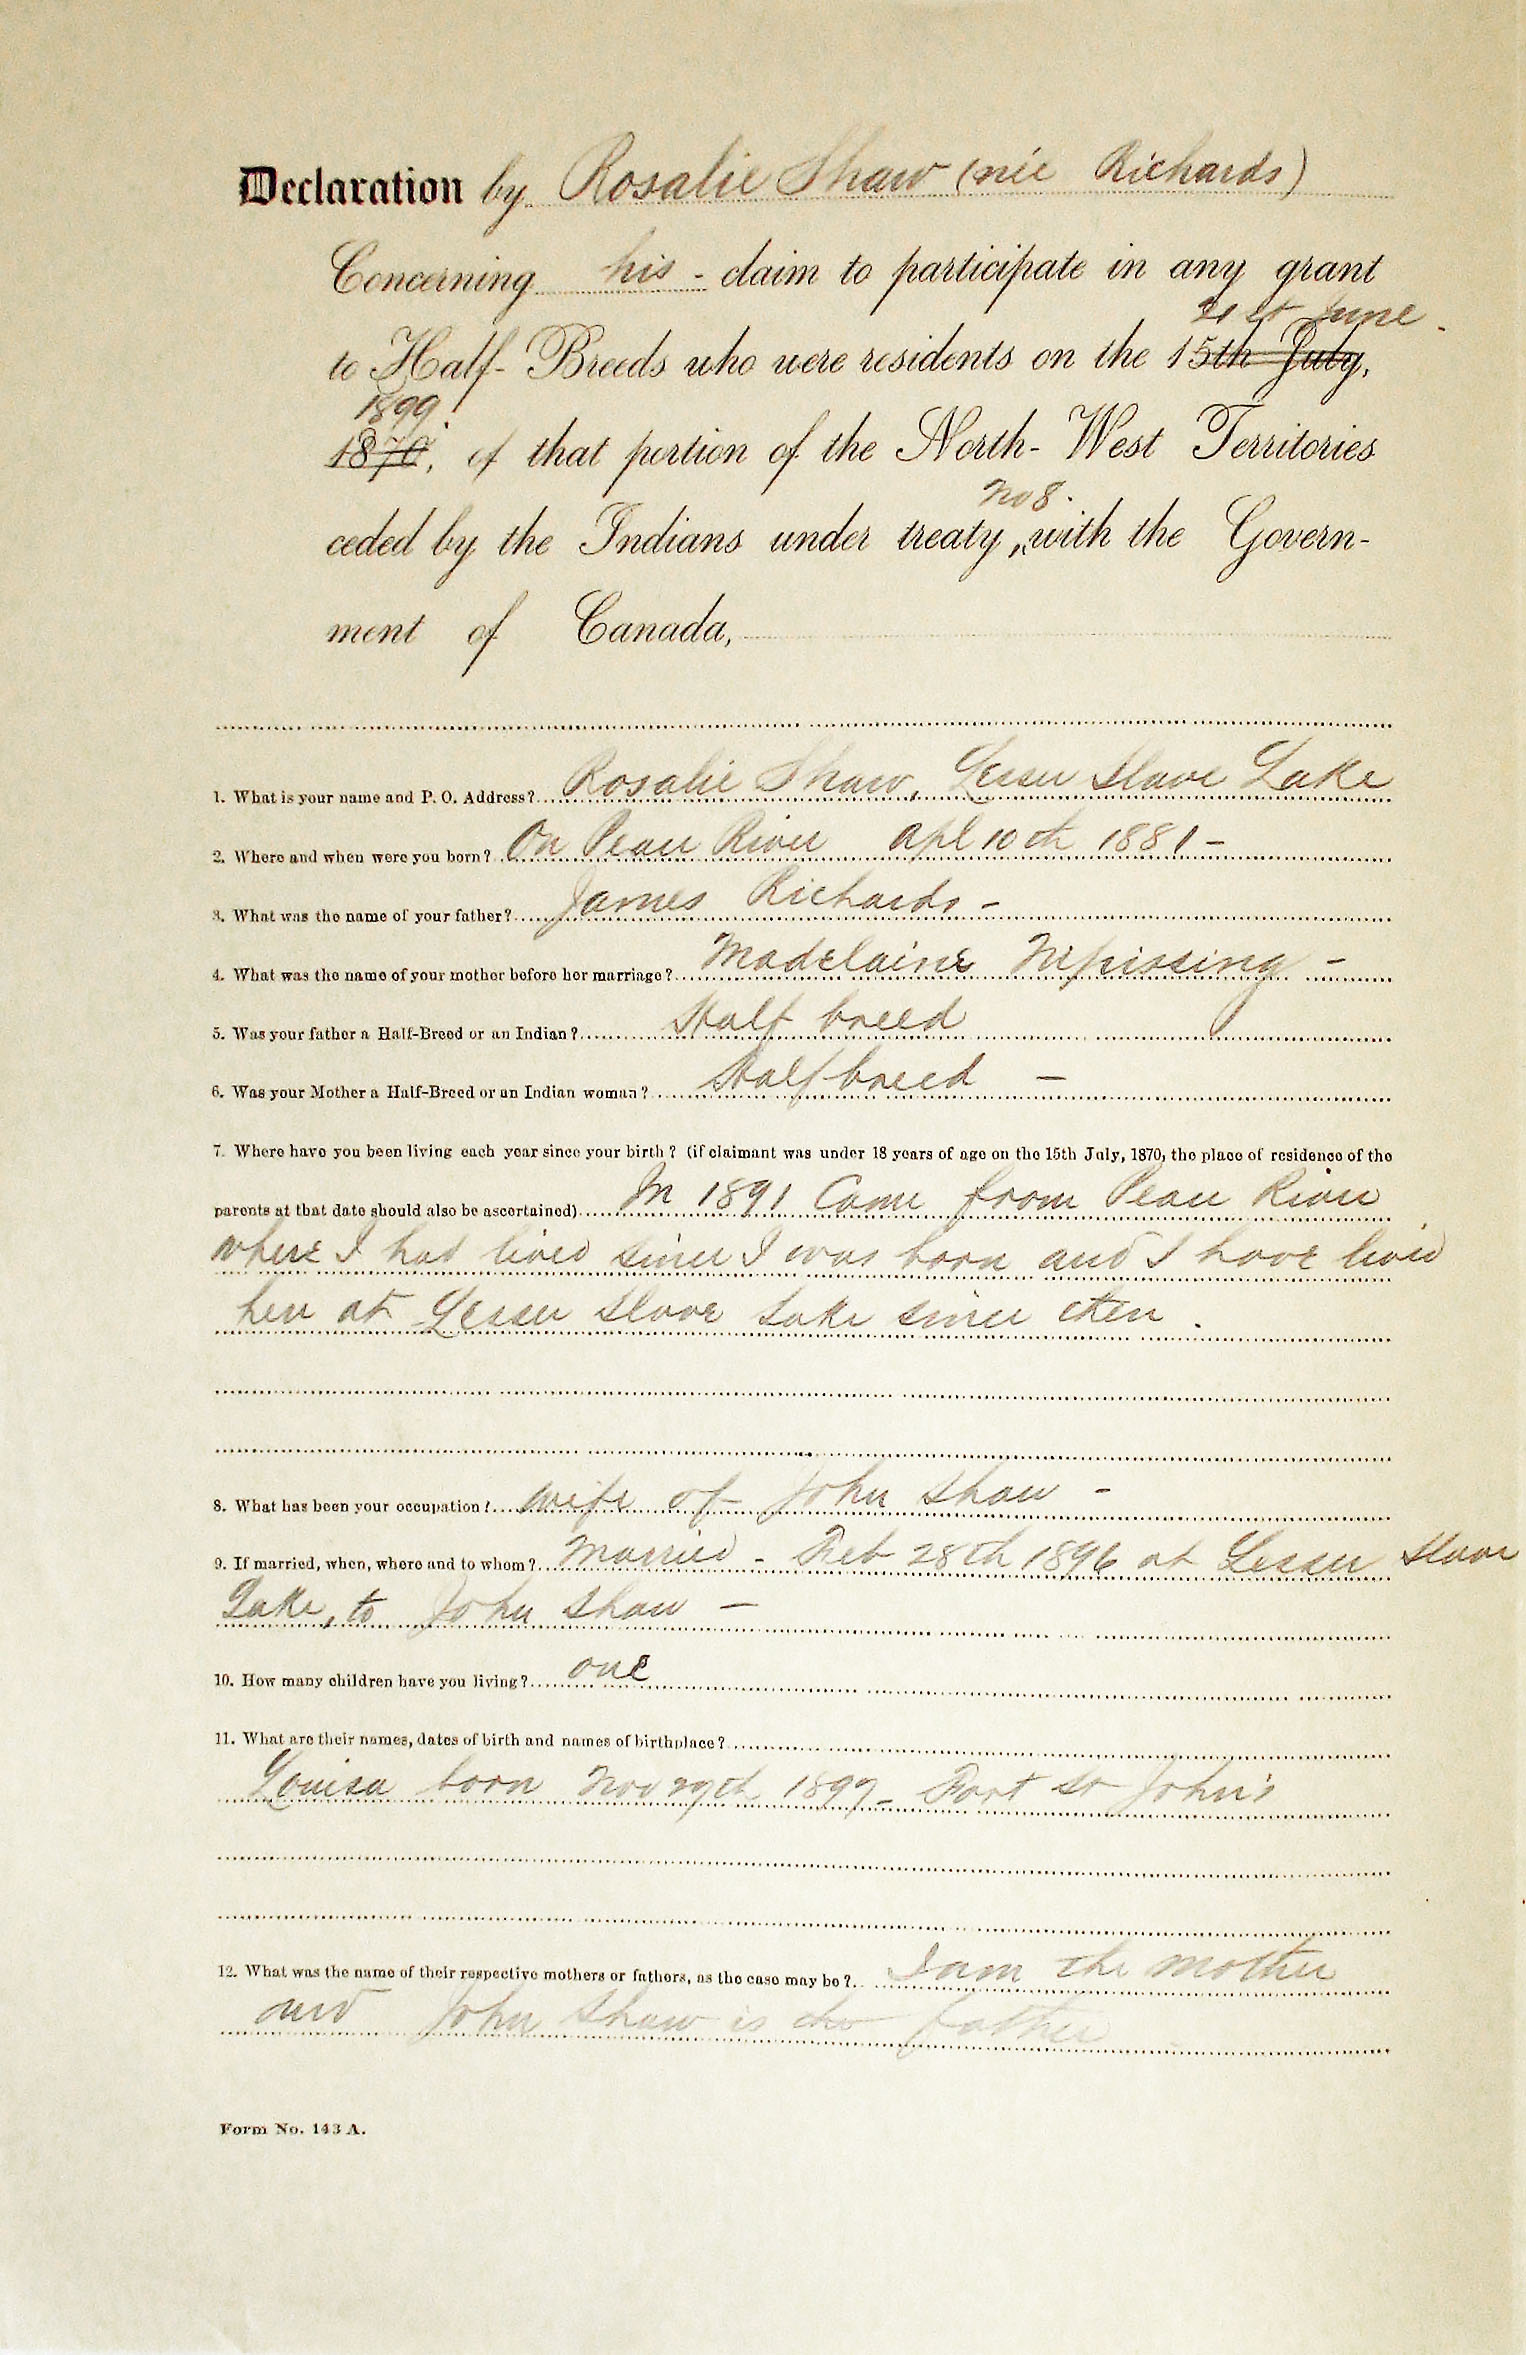 Declaration by Rosalie Shaw (née Richards)
Concerning his - claim to participate in any grant
21st June
to Half-Breeds who were residents on the 15th July,
1899
1870, of that portion of the North-West Territories
No 8.
ceded by the Indians under treaty, with the Govern-
ment of Canada,
1. What is your name and P. O. Address? Rosalie Shaw, Lesser Slave Lake
2. Where and when were you born? On Peace River Apl 10th 1881 -
3. What was the name of your father? James Richards -
4. What was the name of your mother before her marriage? Madelaine Nipissing -
5. Was your father a Half-Breed or an Indian? Half breed
6. Was your Mother a Half-Breed or an Indian woman? Half breed -
7. Where have you been living each year since your birth? (if claimant was under 18 years of age on the 15th July, 1870, the place of residence of the
parents at that date should also be ascertained) In 1891 Came from Peace River
where I had lived since I was born and I have lived
here at Lesser Slave Lake since then.
8. What has been your occupation? wife of John Shaw -
9. If married, when, where and to whom? Married - Feb 28th 1896 at Lesser Slave
Lake, to John Shaw -
10. How many children have you living? one
11. What are their names, dates of birth and names of birthplace?
Louisa born Nov 29th 1897 - Fort St John's
12. What was the name of their respective mothers or fathers, as the case may be? I am the mother
and John Shaw is the father
Form No. 143 A.